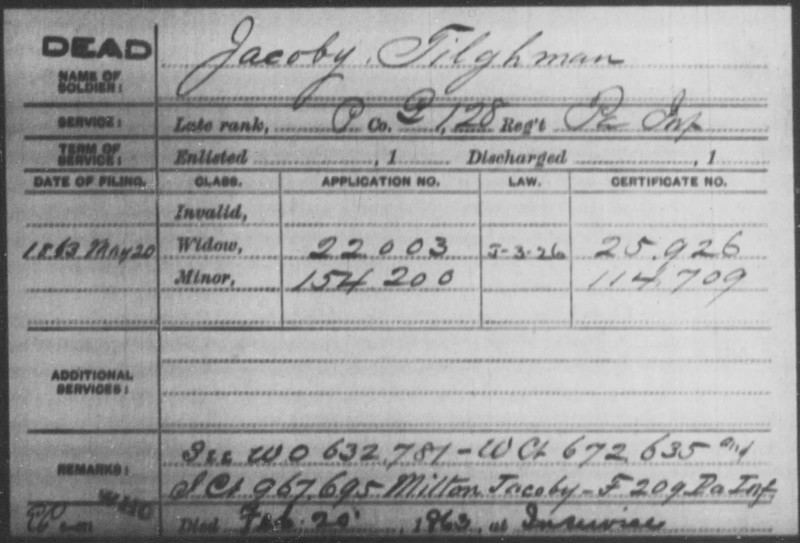 DEAD
Jacoby, Tilghman
NAME OF
SOLDIER:
SERVICE: Late rank, P Co. D, 128 Reg't Pa Inf
TERM OF
SERVICE: Enlisted , 1 Discharged , 1
DATE OF FILING. CLASS. APPLICATION NO. LAW. CERTIFICATE NO.
Invalid,
1863 May 20 Widow, 22003 J-3-26 25,926
Minor, 154200 114,709
ADDITIONAL
SERVICES:
See WO 632,781 - W Ct 672,635 and
REMARKS: Ct 967,695 Milton Jacoby - F 209 Pa Inf
Died Feb. 20, 1863, at In service